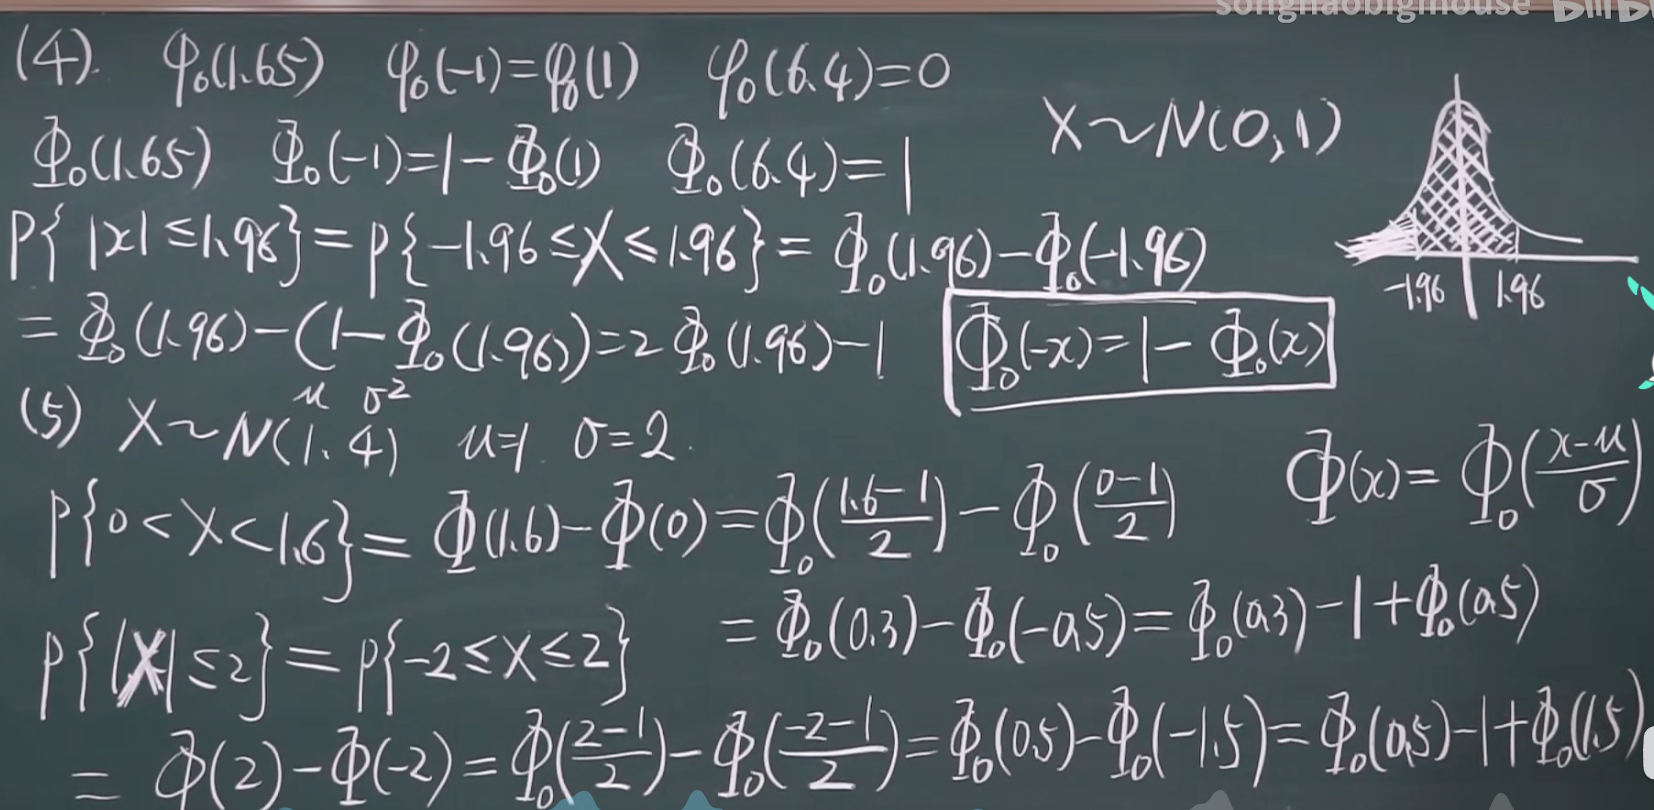 songhaobigmouse
(4). φ₀(1.65) φ₀(-1)=φ₀(1) φ₀(6.4)=0
Φ₀(1.65) Φ₀(-1)=1-Φ₀(1) Φ₀(6.4)=1
X~N(0,1)
P{|x|≤1.96}=P{-1.96≤X≤1.96}=Φ₀(1.96)-Φ₀(-1.96)
-1.96 1.96
=Φ₀(1.96)-(1-Φ₀(1.96))=2Φ₀(1.96)-1
Φ₀(-x)=1-Φ₀(x)
μ σ²
(5) X~N(1.4) μ=1. σ=2.
Φ(x)=Φ₀((x-μ)/σ)
P{0<X<1.6}=Φ(1.6)-Φ(0)=Φ₀((1.6-1)/2)-Φ₀((0-1)/2)
=Φ₀(0.3)-Φ₀(-0.5)=Φ₀(0.3)-1+Φ₀(0.5)
P{|X|≤2}=P{-2≤X≤2}
=Φ(2)-Φ(-2)=Φ₀((2-1)/2)-Φ₀((-2-1)/2)=Φ₀(0.5)-Φ₀(-1.5)=Φ₀(0.5)-1+Φ₀(1.5)